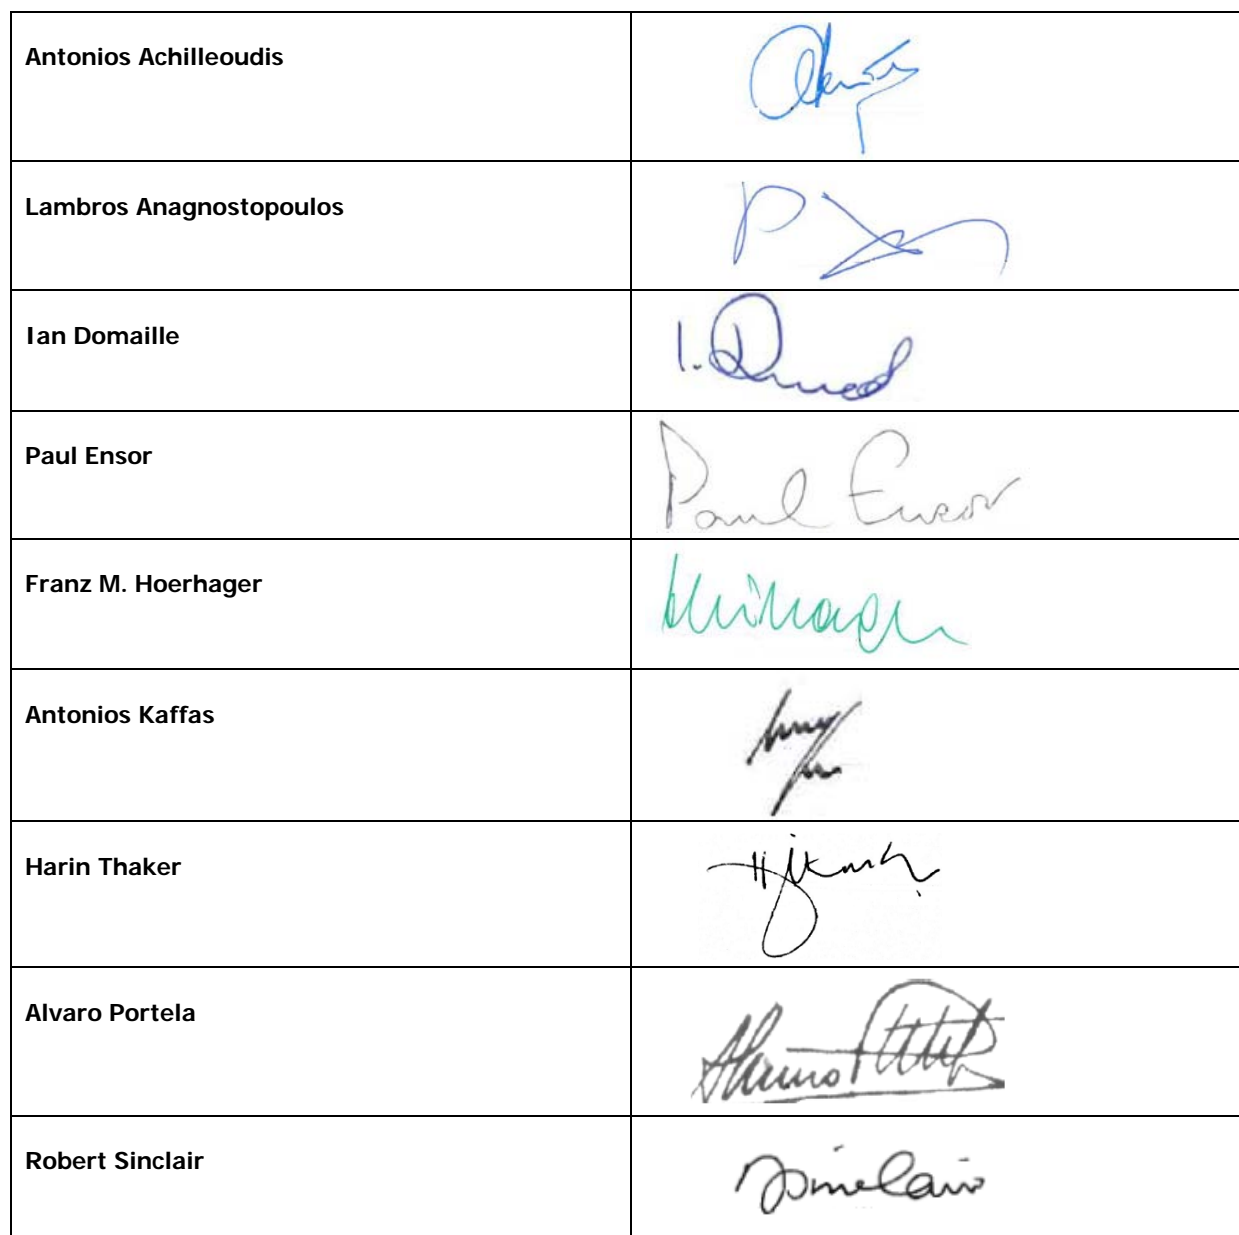 Antonios Achilleoudis
Lambros Anagnostopoulos
Ian Domaille
Paul Ensor
Paul Ensor
Franz M. Hoerhager
Antonios Kaffas
Harin Thaker
Alvaro Portela
Robert Sinclair
Sinclair